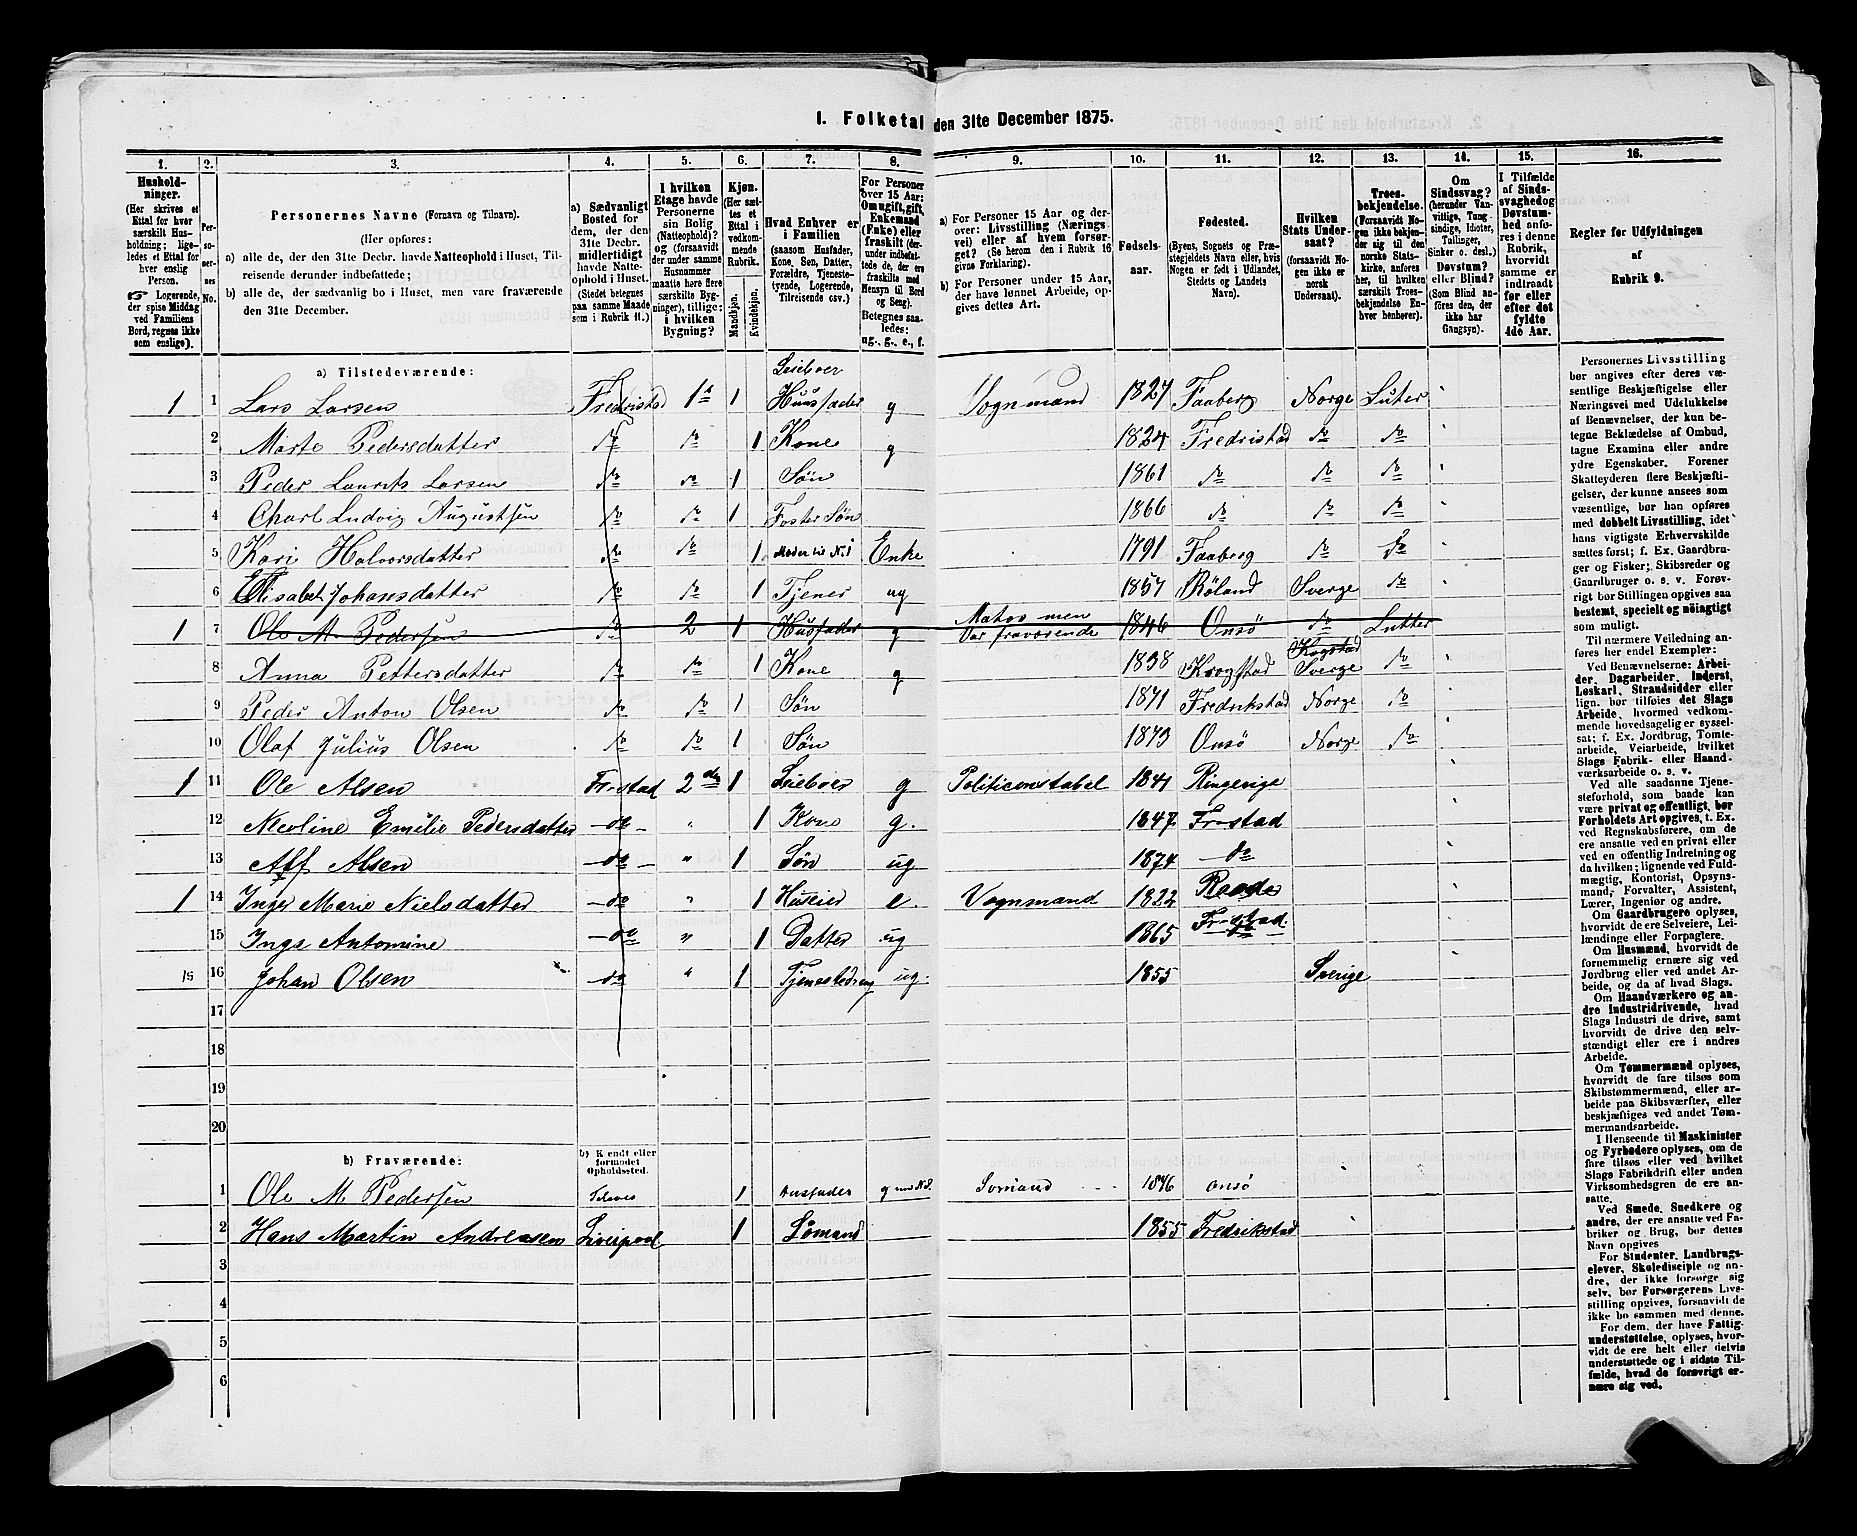 1. Folketal den 31te December 1875.
1. 2. 3. 4. 5. 6. 7. 8. 9. 10. 11. 12. 13. 14. 15. 16.
Husholdninger. (Her skrives et Ettal for hver særskilt Husholdning; ligeledes et Ettal for hver enslig Person. ☞ Logerende, der spise Middag ved Familiens Bord, regnes ikke som enslige).
Personernes No.
Personernes Navne (Fornavn og Tilnavn).
(Her opføres:
a) alle de, der den 31te Decbr. havde Natteophold i Huset, Tilreisende derunder indbefattede;
b) alle de, der sædvanlig bo i Huset, men vare fraværende den 31te December.
a) Sædvanligt Bosted for dem, der den 31te Decbr. midlertidigt havde Natteophold i Huset. (Stedet betegnes paa samme Maade som i Rubrik 11.)
I hvilken Etage havde Personerne sin Bolig (Natteophold)? og (forsaavidt der under samme Husnummer maatte høre flere særskilte Bygninger), tillige: i hvilken Bygning?
Kjøn. (Her sættes et Ettal i vedkommende Rubrik. Mandkjøn. Kvindekjøn.
Hvad Enhver er i Familien (saasom Husfader, Kone, Søn, Datter, Forældre, Tjenestetyende, Logerende, Tilreisende osv.)
For Personer over 15 Aar: Om ugift, gift, Enkemand (Enke) eller fraskilt (derunder indbefattede de, der ere fraskilte med Hensyn til Bord og Seng). Betegnes saaledes: ug., g., e., f.
a) For Personer 15 Aar og derover: Livsstilling (Næringsvei) eller af hvem forsørget? (Se herom den i Rubrik 16 givne Forklaring).
b) For Personer under 15 Aar, der have lønnet Arbeide, opgives dettes Art.
Fødselsaar.
Fødested. (Byens, Sognets og Præstegjeldets Navn, eller, hvis Nogen er født i Udlandet, Stedets og Landets Navn).
Hvilken Stats Undersaat? (forsaavidt Nogen ikke er norsk Undersaat).
Troesbekjendelse. (Forsaavidt Nogen ikke bekjender sig til den norske Statskirke, anføres her, til hvilken særskilt Troesbekjendelse Enhver henhører).
Om Sindssvag? (herunder Vanvittige, Tungsindige, Idioter, Tullinger, Sinker o. desl.). Døvstum? eller Blind? (Som Blind anføres den, der ikke har Gangsyn).
I Tilfælde af Sindssvaghed og Døvstumhed anføres i denne Rubrik, hvorvidt samme er indtraadt før eller efter det fyldte 4de Aar.
Regler før Udfyldningen af Rubrik 9.
a) Tilstedeværende:
1 1 Lars Larsen Fredristad 1ª 1 Leieboer Huusfader g Vognmand 1827 Faaberg Norge Luter
2 Marte Pedersdatter do do 1 Kone g 1824 Fredristad do do
3 Peder Laurits Larsen do do 1 Søn 1861 do do do
4 Charl Ludvig Augustsen do do 1 Foster Søn 1866 do do do
5 Kari Halvorsdatter do do 1 Moder til N.1 Enke 1791 Faaberg do do
6 Elisabet Johansdatter do do 1 Tjener ug 1857 Røland Sverge do
1 7 Ole M. Pedersen do 2 1 Husfader g Matros men Var fraværende 1846 Onsö do Lutter
8 Anna Pettersdatter do 1 Kone g 1838 Krogstad Kogstad Sverge do
9 Peder Anton Olsen do do 1 Søn 1871 Fredrikstad Norge do
10 Olaf Julius Olsen do do 1 Søn 1873 Onsö Norge do
1 11 Ole Alsen Fr-stad 2den 1 Leieboer g Politiconstabel 1841 Ringerige
12 Nicoline Emilie Pedersdatter -do- " 1 Kone g. 1847 Fr-stad
13 Alf Alsen -do- " 1 Søn ug 1874 -do
1 14 Inger Marie Nielsdatter -do " 1 Huseier e. Vognmand 1822 Raade
15 Inga Antomine -do " 1 Datter ug 1865 Fr-stad
16 Johan Olsen do " 1 Tjenestedreng ug. 1855 Sverige
17
18
19
20
b) Fraværende:
b) Kendt eller formodet Opholdssted.
1 Ole M Pedersen 1 Husfader g med N 8. Sømand 1846 Onsö
2 Hans Martin Andreasen Liverpool 1 Sømand 1855 Fredrikstad
3
4
5
6
Personernes Livsstilling bør angives efter deres væsentlige Beskjæftigelse eller Næringsvei med Udelukkelse af Benævnelser, der kun betegne Beklædelse af Ombud, tagne Examina eller andre ydre Egenskaber. Forener Skatteyderen flere Beskjæftigelser, der kunne ansees som væsentlige, bør han opføres med dobbelt Livsstilling, idet hans vigtigste Erhvervskilde sættes først; f. Ex. Gaardbruger og Fisker; Skibsreder og Gaardbruger o. s. v. Forøvrigt bør Stillingen opgives saa bestemt, specielt og nöiagtigt som muligt.
Til nærmere Veiledning anføres her endel Exempler:
Ved Benævnelserne: Arbeider, Dagarbeider, Inderst, Løskarl, Strandsidder eller lign. bør tilføies det Slags Arbeide, hvormed vedkommende hovedsagelig er sysselsat; f. Ex. Jordbrug, Tomtearbeide, Veiarbeide, hvilket Slags Fabrik- eller Haandværksarbeide o. s. v.
Ved alle saadanne Tjenesteforhold, som baade kan være privat og offentligt, bør Forholdets Art opgives, f. Ex. ved Regnskabsførere, om de ere ansatte ved en privat eller ved en offentlig Indretning og da hvilken; lignende ved Fuldmægtig, Kontorist, Opsynsmand, Forvalter, Assistent, Lærer, Ingeniør og andre.
Om Gaardbrugere oplyses, hvorvidt de ere Selveiere, Leilændinge eller Forpagtere.
Om Husmænd, hvorvidt de fornemmelig ernære sig ved Jordbrug eller ved andet Arbeide, og da af hvad Slags.
Om Haandværkere og andre Industridrivende, hvad Slags Industri de drive, samt hvorvidt de drive den selvstændigt eller ere i andres Arbeide.
Om Tømmermænd oplyses, hvorvidt de fare tilsøs som Skibstømmermænd, eller arbeide paa Skibsværfter, eller beskjæftiges ved andet Tømmermandsarbeide.
I Henseende til Maskinister og Fyrbødere oplyses, om de fare tilsøs eller ved hvilket Slags Fabrikdrift eller anden Virksomhedsgren de ere ansatte.
Ved Smede, Snedkere og andre, der ere ansatte ved Fabriker og Brug, bør dettes Navn opgives
For Studenter, Landbrugselever, Skoledisciple og andre, der ikke forsørge sig selv, bør Forsørgerens Livsstilling opgives, forsaavidt de ikke bo sammen med denne.
For dem, der have Fattigunderstøttelse, oplyses, hvorvidt de ere helt eller delvis understøttede og i sidste Tilfælde, hvad de forøvrigt ernære sig ved.